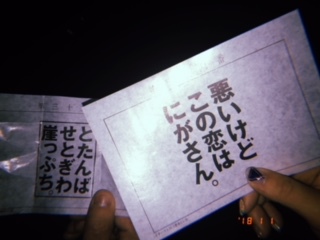 悪いけど
この恋は
にがさん。
とたんば
せとぎわ
崖っぷち
'18 1 1